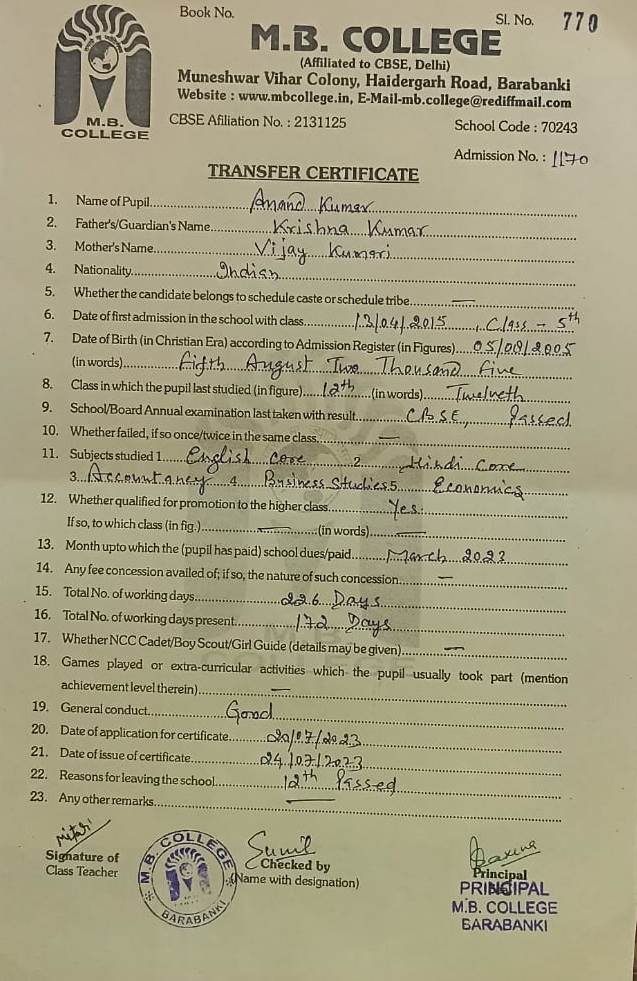 Book No.
Sl. No. 770
M.B. COLLEGE
(Affiliated to CBSE, Delhi)
Muneshwar Vihar Colony, Haidergarh Road, Barabanki
Website : www.mbcollege.in, E-Mail-mb.college@rediffmail.com
M.B.
COLLEGE
CBSE Afiliation No. : 2131125
School Code : 70243
Admission No. : 1170
TRANSFER CERTIFICATE
1. Name of Pupil Anand Kumar
2. Father's/Guardian's Name Krishna Kumar
3. Mother's Name Vijay Kumari
4. Nationality Indian
5. Whether the candidate belongs to schedule caste or schedule tribe —
6. Date of first admission in the school with class 13/04/2015, Class - 5th
7. Date of Birth (in Christian Era) according to Admission Register (in Figures) 05/08/2005
(in words) Fifth August Two Thousand Five
8. Class in which the pupil last studied (in figure) 12th (in words) Twelveth
9. School/Board Annual examination last taken with result CBSE, Passed
10. Whether failed, if so once/twice in the same class —
11. Subjects studied 1 English Core 2 Hindi Core
3 Accountancy 4 Business Studies 5 Economics
12. Whether qualified for promotion to the higher class Yes
If so, to which class (in fig.) — (in words) —
13. Month upto which the (pupil has paid) school dues/paid March 2023
14. Any fee concession availed of; if so, the nature of such concession —
15. Total No. of working days 226 Days
16. Total No. of working days present 172 Days
17. Whether NCC Cadet/Boy Scout/Girl Guide (details may be given) —
18. Games played or extra-curricular activities which the pupil usually took part (mention
achievement level therein) —
19. General conduct Good
20. Date of application for certificate 20/07/2023
21. Date of issue of certificate 24/07/2023
22. Reasons for leaving the school 12th Passed
23. Any other remarks —
Signature of
Class Teacher
M.B. COLLEGE
BARABANKI
Sunil
Checked by
(Name with designation)
Principal
PRINCIPAL
M.B. COLLEGE
BARABANKI